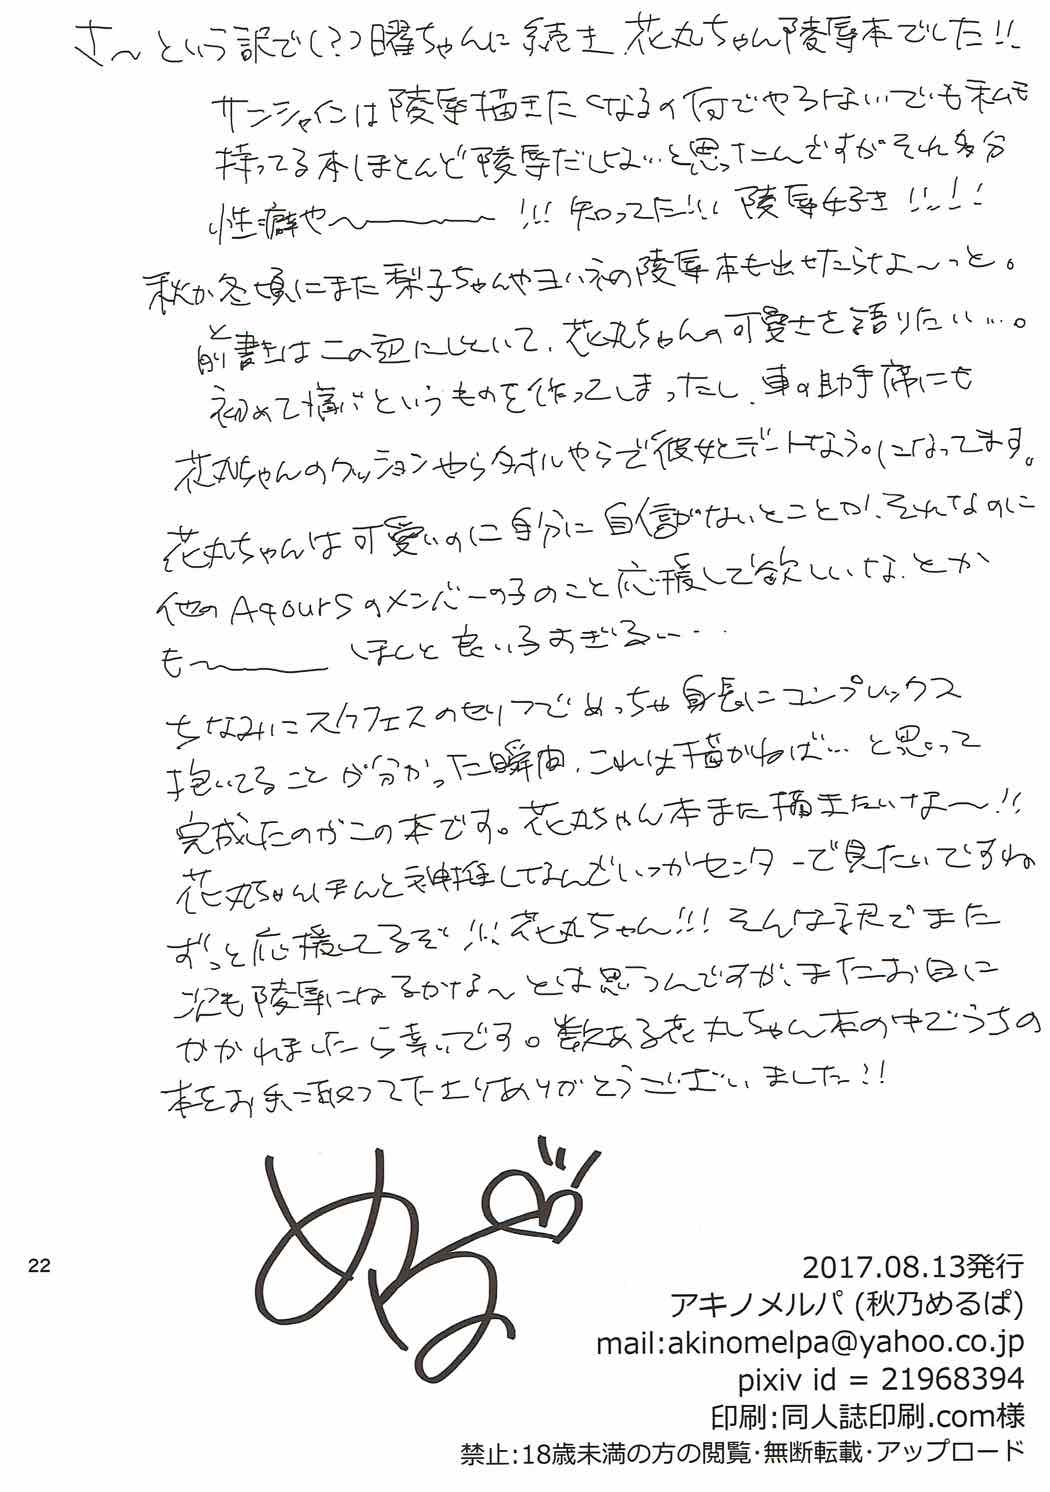 さ～という訳で(?)曜ちゃんに続き花丸ちゃん陵辱本でした!!
サンシャインは陵辱描きたくなるの何でやろ ないでも私も
持ってる本ほとんど陵辱だしな…と思ったんですがそれ多分
性癖や～!!! 知ってた!!! 陵辱好き!!!!
秋か冬頃にまた梨子ちゃんやヨハネの陵辱本も出せたらな～っと。
と前書きはこの辺にしといて、花丸ちゃんの可愛さを語りたい…。
初めて痛バというものを作ってしまったし、車の助手席にも
花丸ちゃんのクッションやらタオルやらで彼女とデートなう。になってます。
花丸ちゃんは可愛いのに自分に自信がないとことか、それなのに
他のAqoursのメンバーの子のこと応援して欲しいな、とか
も～ ほんと良い子すぎる…
ちなみにスクフェスのセリフでめっちゃ身長にコンプレックス
抱いてることが分かった瞬間、これは描かねば…と思って
完成したのがこの本です。花丸ちゃん本また描きたいな～!!
花丸ちゃんほんと神推してなんでいつかセンターで見たいですね
ずっと応援してるぞ!!! 花丸ちゃん!!! そんな訳でまた
次も陵辱になるかな～とは思うんですが、またお目に
かかれましたら幸いです。数ある花丸ちゃん本の中でうちの
本をお手に取って下さりありがとうございました!!
める
22
2017.08.13発行
アキノメルパ (秋乃めるぱ)
mail:akinomelpa@yahoo.co.jp
pixiv id = 21968394
印刷:同人誌印刷.com様
禁止:18歳未満の方の閲覧・無断転載・アップロード